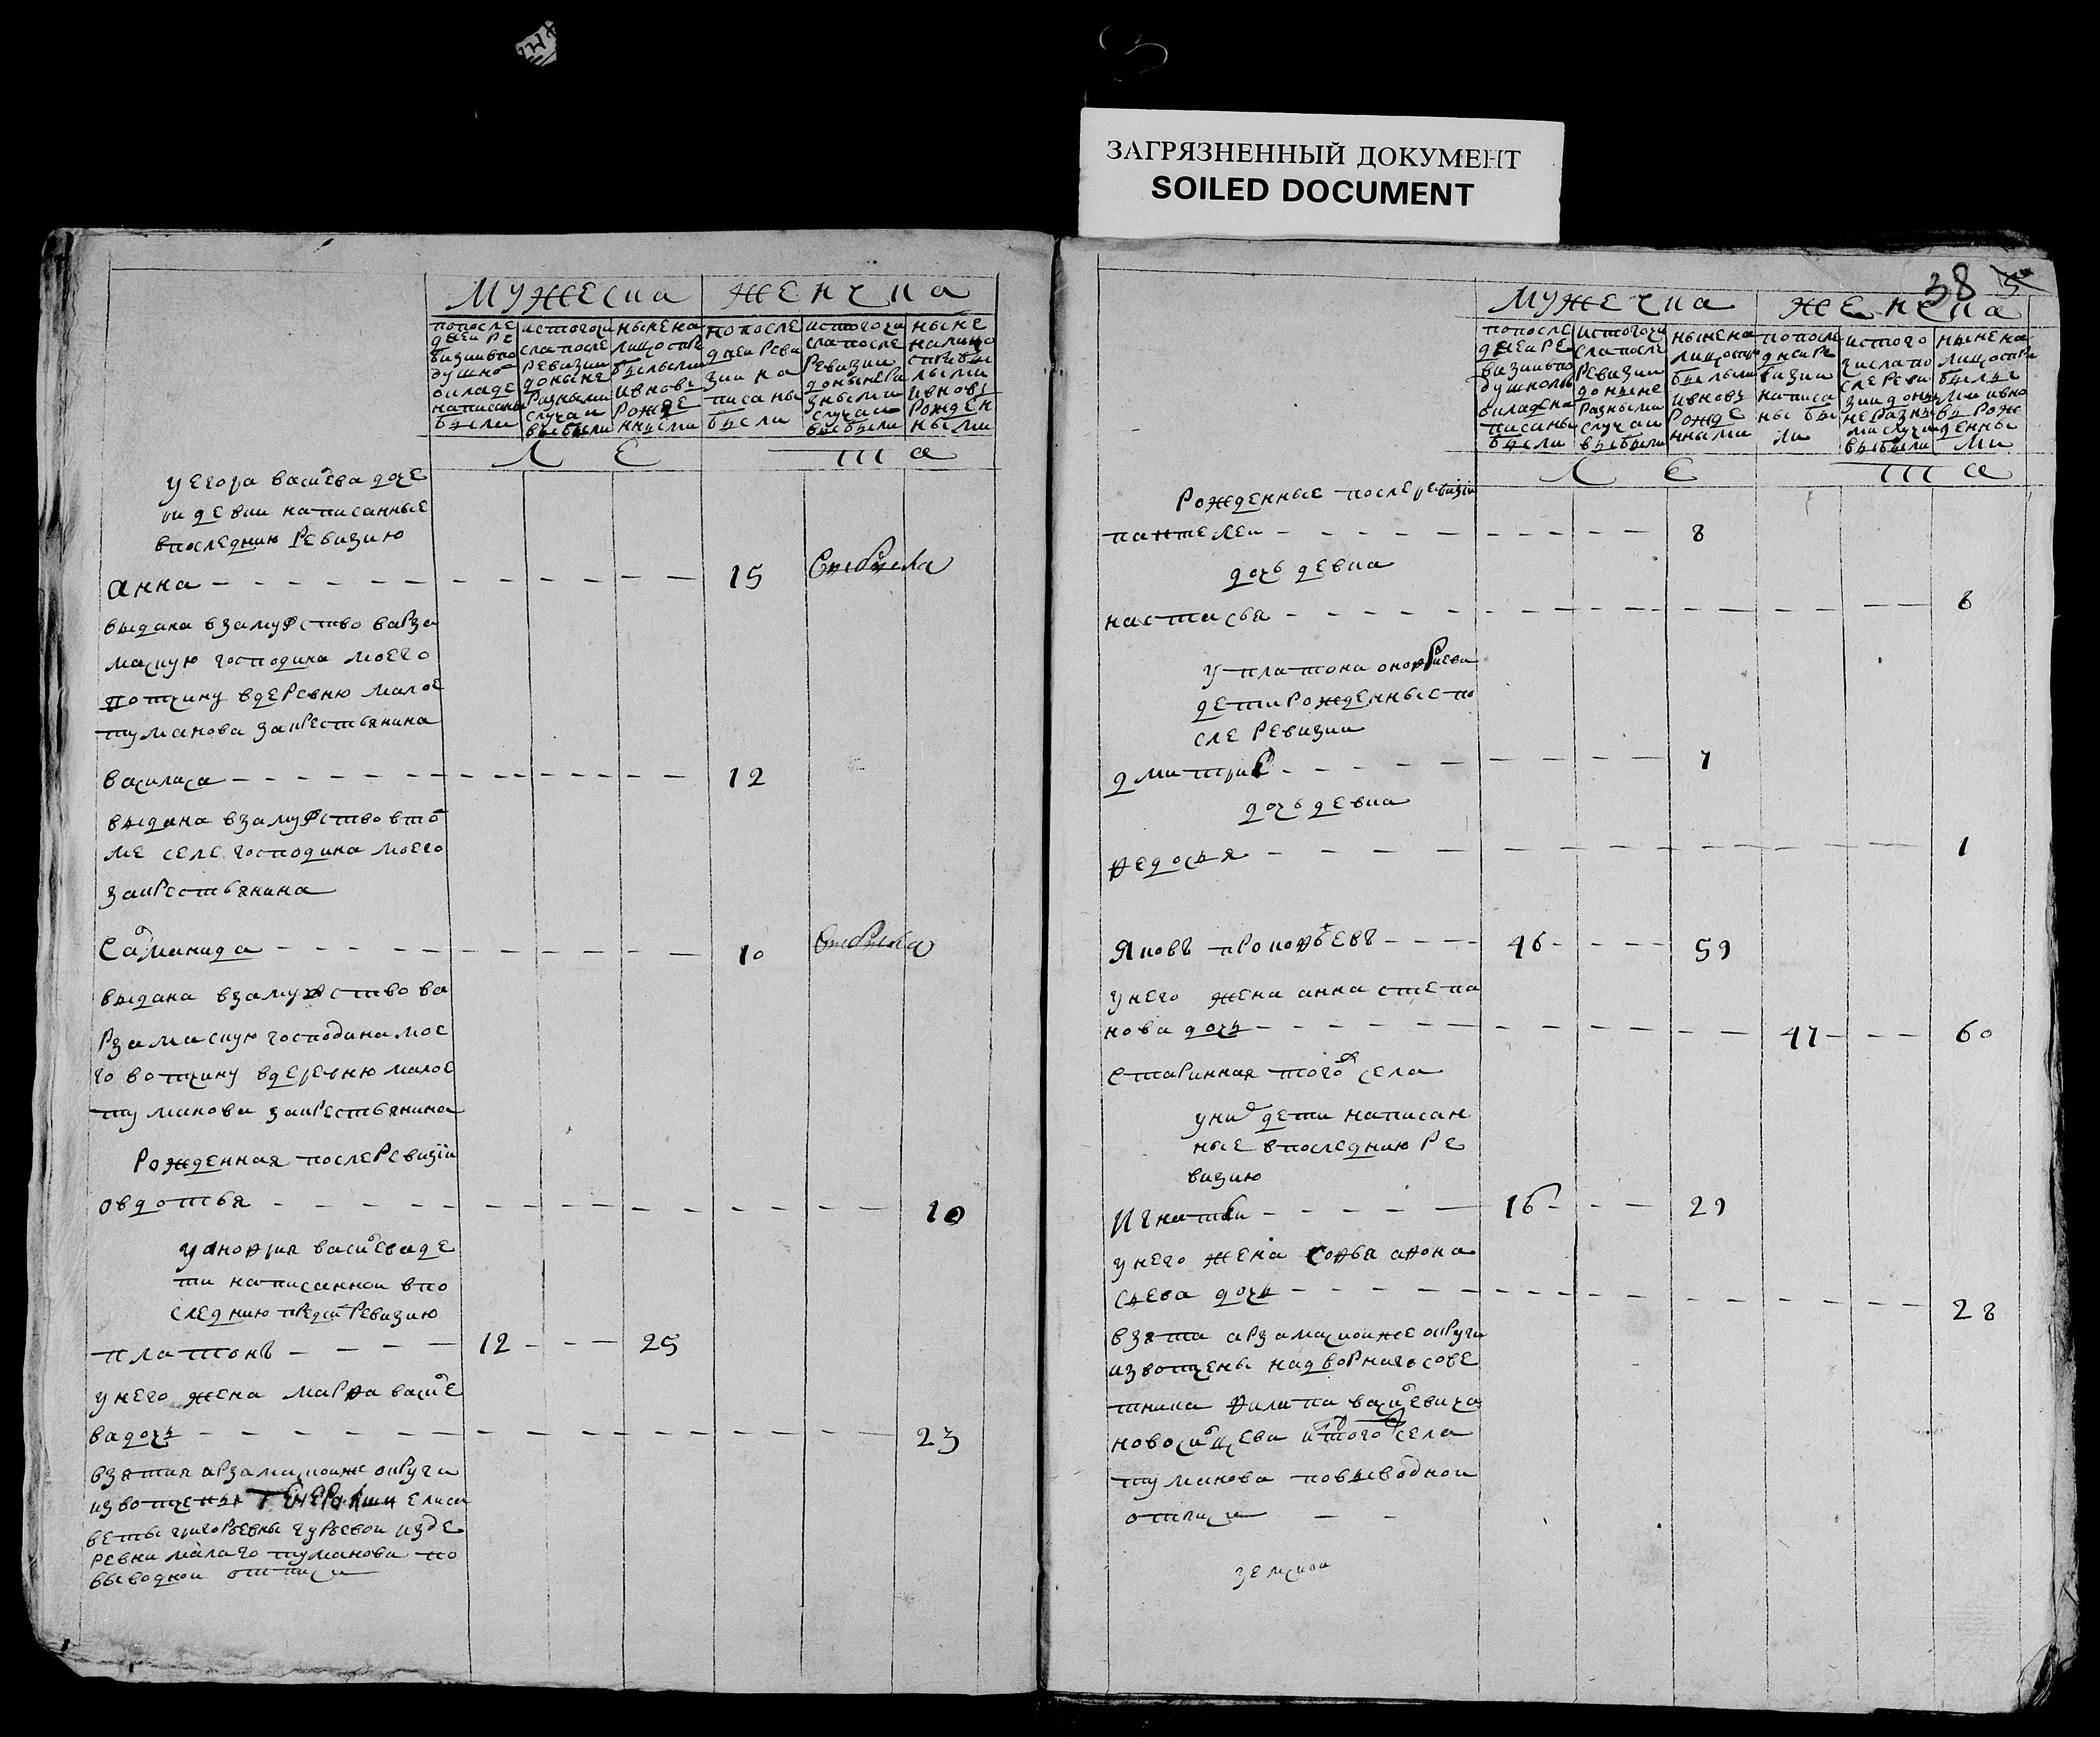 ЗАГРЯЗНЕННЫЙ ДОКУМЕНТ
SOILED DOCUMENT
мужеска женска
попосле днеи ревизии вподушно окладе написаны были
истогочи сла после ревизии доныне разными случаи выбыли
ныне на лицо с прибылыми и вновь рожденными
попосле днеи ревизии написаны были
истогочи сла после ревизии доныне разными случаи выбыли
ныне налицо с прибылыми и вновь рожденными
ле та
у егора василева доче
ри девки написанные
впоследнию ревизию
анна 15 выбыла
выдана взамужство варза
маскую господина моего
вотчину вдеревню малое
туманова закрестьянина
василиса 12
выдана взамужство втo
ме селе господина моего
закрестьянина
Саломанида 10 выбыла
выдана взамужство ва
рзамаскую господина мое
го вотчину вдеревню малое
туманова закрестьянина
Рожденная после ревизiи
овдотья 10
у анофрия василева де
ти написаннои впо
следнию пред сим ревизию
платонъ 12 25
унего жена марфа василе
ва дочь 23
взятая арзамаскои же округи
извотчены генеральши елиса
веты григорьевны гурьевои изде
ревни малаго туманова по
выводнои отписи
38
мужеска женска
попосле днеи ревизии вподушном окладе написаны были
истогочи сла после ревизии доныне разными случаи выбыли
ныне на лицо с прибылыми и вновь рожденными
попосле днеи ревизии написаны были
истого числа после ревизии доныне разными случаи выбыли
ныне на лицо с прибылыми и вновь рожденными
ле та
Рожденные после ревизiи
пантелеи 8
дочь девка
настасья 6
у платона онофриева
дети рожденные по
сле ревизии
дмитрии 7
дочь девка
федосья 1
Яковъ прокофьевъ 46 59
унего жена анна степа
нова дочь 47 60
старинная того ж села
у них дети написан
ные впоследнию ре
визию
Игнатеи 16 29
унего жена софья афона
сьева дочь 28
взята арзамаскои же округи
извотчены надворнаго сове
тника филипа василевича
новосилцева того ж села
туманова повыводнои
отписи